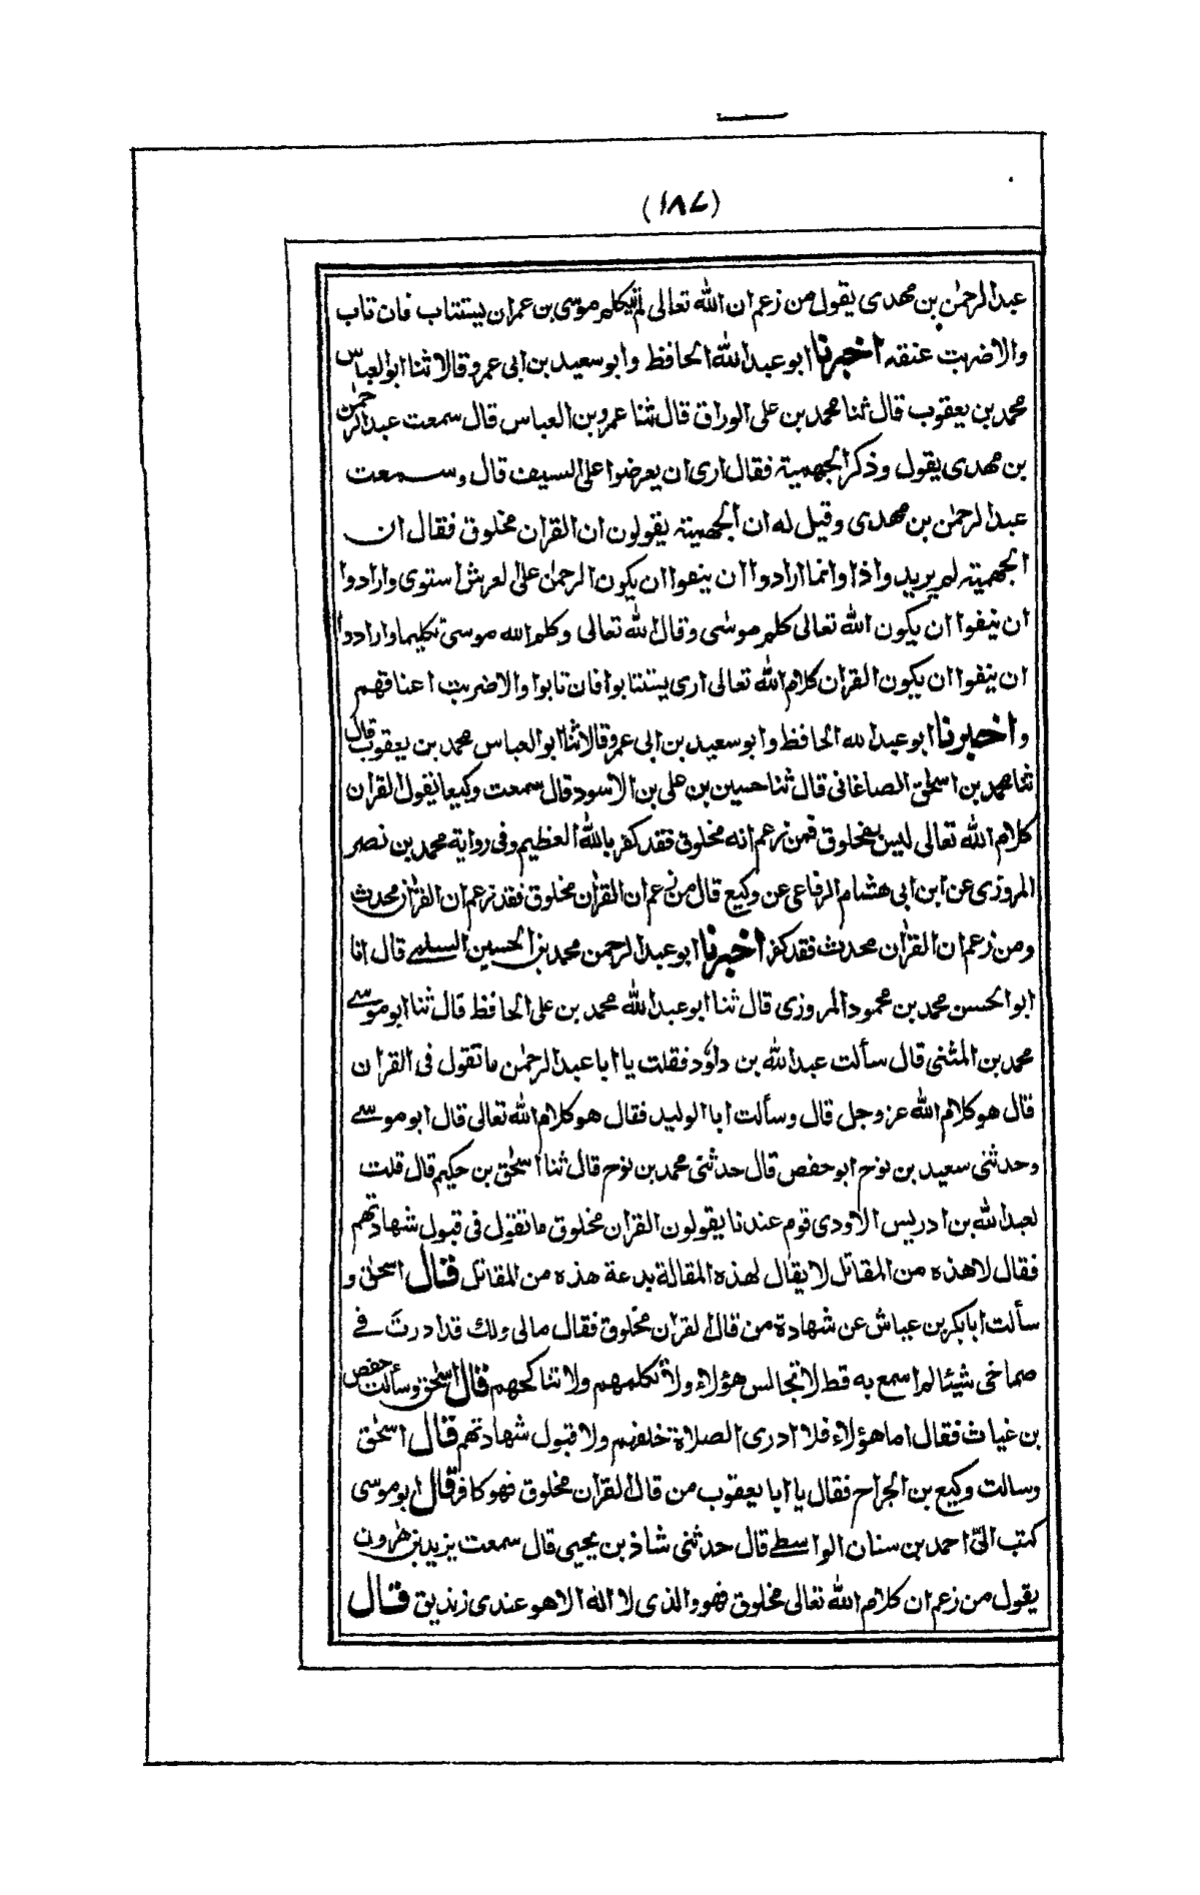 (١٨٧)
عبد الرحمٰن بن مهدى يقول من زعم ان الله تعالى لم يكلم موسى بن عمران يستتاب فان تاب
والا ضربت عنقه اخبرنا ابو عبد الله الحافظ وابو سعيد بن ابى عمرو قالا ثنا ابو العباس
محمد بن يعقوب قال ثنا محمد بن على الوراق قال ثنا عمرو بن العباس قال سمعت عبد الرحمٰن
بن مهدى يقول وذكر الجهمية فقال ارى ان يعرضوا على السيف قال وسمعت
عبد الرحمٰن بن مهدى وقيل له ان الجهمية يقولون ان القران مخلوق فقال ان
الجهمية لم يريدوا ذا وانما ارادوا ان ينفوا ان يكون الرحمٰن على العرش استوى وارادوا
ان ينفوا ان يكون الله تعالى كلم موسٰى وقال الله تعالى وكلم الله موسى تكليما وارادوا
ان ينفوا ان يكون القران كلام الله تعالى ارى يستتابوا فان تابوا والا ضربت اعناقهم
واخبرنا ابو عبد الله الحافظ وابو سعيد بن ابى عمرو قالا ثنا ابو العباس محمد بن يعقوب قال
ثنا محمد بن اسحٰق الصاغانى قال ثنا حسين بن على بن الاسود قال سمعت وكيعا يقول القران
كلام الله تعالى ليس بمخلوق فمن زعم انه مخلوق فقد كفر بالله العظيم وفى رواية محمد بن نصر
المروزى عن ابن ابى هشام الرفاعى عن وكيع قال من زعم ان القران مخلوق فقد زعم ان القران محدث
ومن زعم ان القران محدث فقد كفر اخبرنا ابو عبد الرحمن محمد بن الحسين السلمے قال انا
ابو الحسن محمد بن محمود المروزى قال ثنا ابو عبد الله محمد بن على الحافظ قال ثنا ابو موسے
محمد بن المثنى قال سألت عبد الله بن داؤد فقلت يا ابا عبد الرحمٰن ما تقول فى القران
قال هو كلام الله عز وجل قال وسألت ابا الوليد فقال هو كلام الله تعالى قال ابو موسے
وحدثنى سعيد بن نوح ابو حفص قال حدثنى محمد بن نوح قال ثنا اسحٰق بن حكيم قال قلت
لعبد الله بن ادريس الاودى قوم عندنا يقولون القران مخلوق ما تقول فى قبول شهادتهم
فقال لا هذه من المقاتل لا يقال لهذه المقالة بدعة هذه من المقاتل قال اسحٰق و
سألت ابا بكر بن عياش عن شهادة من قال القران مخلوق فقال مالى ولك قد ادرت فے
صماخى شيئا لم اسمع به قط لا تجالس هؤلاء ولا تكلمهم ولا تناكحهم قال اسحٰق وسألت حفص
بن غياث فقال اما هؤلاء فلا ادرى الصلاة خلفهم ولا قبول شهادتهم قال اسحٰق
وسالت وكيع بن الجراح فقال يا ابا يعقوب من قال القران مخلوق فهو كافر قال ابو موسى
كتب الىّ احمد بن سنان الواسطے قال حدثنى شاذ بن يحيى قال سمعت يزيد بن هٰرون
يقول من زعم ان كلام الله تعالى مخلوق فهو والذى لا اله الا هو عندى زنديق قال